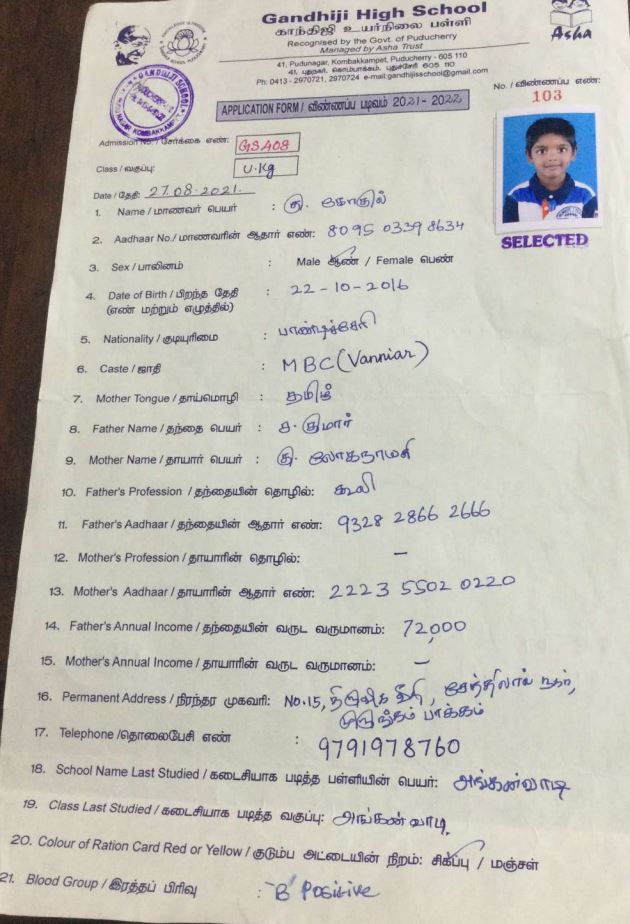 Gandhiji High School
காந்திஜி உயர்நிலை பள்ளி
Recognised by the Govt. of Puducherry
Managed by Asha Trust
Asha
41, Pudunagar, Kombakkampet, Puducherry - 605 110
41, புதுநகர், கொம்பாக்கம்பேட், புதுச்சேரி 605 110
Ph: 0413 - 2970721, 2970724 e-mail:gandhijisschool@gmail.com
No. / விண்ணப்ப எண்:
103
APPLICATION FORM / விண்ணப்ப படிவம் 2021 - 2022
Admission No. / சேர்க்கை எண்: GS408
Class / வகுப்பு: U.Kg
Date / தேதி: 27.08.2021.
SELECTED
1. Name / மாணவர் பெயர் : கு.
2. Aadhaar No./ மாணவரின் ஆதார் எண்: 8095 0339 8634
3. Sex / பாலினம் : Male ஆண் / Female பெண்
4. Date of Birth / பிறந்த தேதி : 22-10-2016
(எண் மற்றும் எழுத்தில்)
5. Nationality / குடியுரிமை : பாண்டிச்சேரி
6. Caste / ஜாதி : MBC (Vanniar)
7. Mother Tongue / தாய்மொழி : தமிழ்
8. Father Name / தந்தை பெயர் : ச. குமார்
9. Mother Name / தாயார் பெயர் : கு. லோகநாயகி
10. Father's Profession / தந்தையின் தொழில்: கூலி
11. Father's Aadhaar / தந்தையின் ஆதார் எண்: 9328 2866 2666
12. Mother's Profession / தாயாரின் தொழில்: –
13. Mother's Aadhaar / தாயாரின் ஆதார் எண்: 2223 5502 0220
14. Father's Annual Income / தந்தையின் வருட வருமானம்: 72,000
15. Mother's Annual Income / தாயாரின் வருட வருமானம்: –
16. Permanent Address / நிரந்தர முகவரி: No.15, திருவிக வீதி, நகர்,
முருங்கம் பாக்கம்
17. Telephone /தொலைபேசி எண் : 9791978760
18. School Name Last Studied / கடைசியாக படித்த பள்ளியின் பெயர்: அங்கன்வாடி
19. Class Last Studied / கடைசியாக படித்த வகுப்பு: அங்கன் வாடி
20. Colour of Ration Card Red or Yellow / குடும்ப அட்டையின் நிறம்: சிகப்பு / மஞ்சள்
21. Blood Group / இரத்தப் பிரிவு : "B" Positive